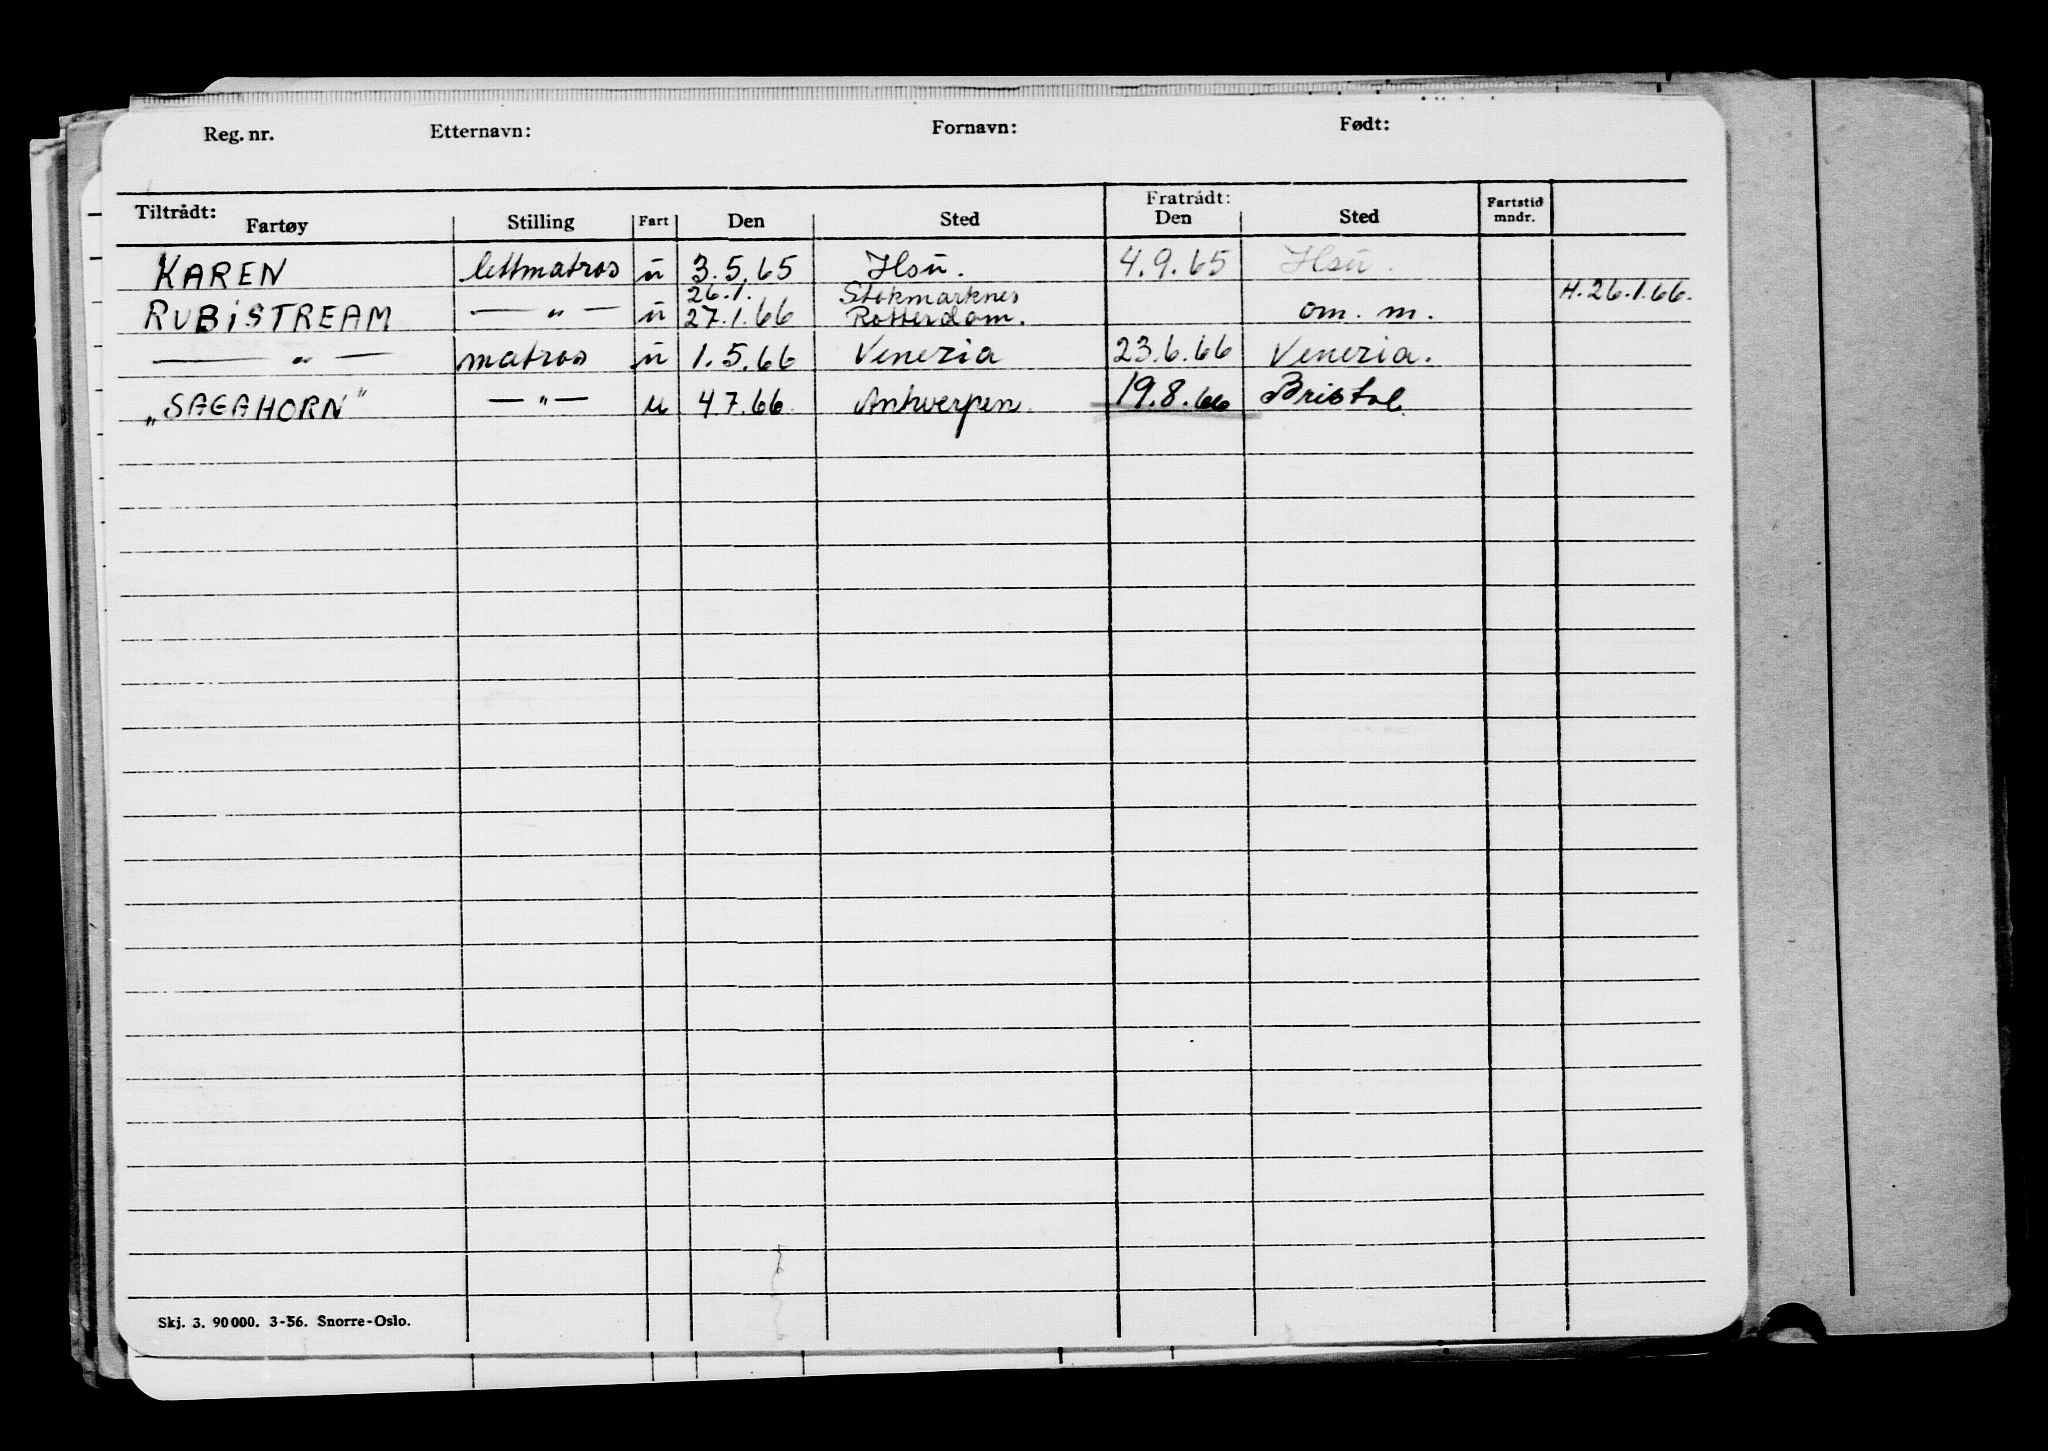 Reg. nr. Etternavn: Fornavn: Født:
Tiltrådt: Fratrådt:
Fartøy Stilling Fart Den Sted Den Sted Fartstid mndr.
KAREN lettmatros u 3.5.65 Hsu. 4.9.65 Hsu.
26.1. Stokmarknes H. 26.1.66.
RUBISTREAM — " — u 27.1.66 Rotterdam. om. m.
— " — matros u 1.5.66 Venezia 23.6.66 Venezia.
„SAGAHORN" — " — u 4 7.66 Antwerpen 19.8.66 Bristol.
Skj. 3. 90 000. 3-56. Snorre-Oslo.